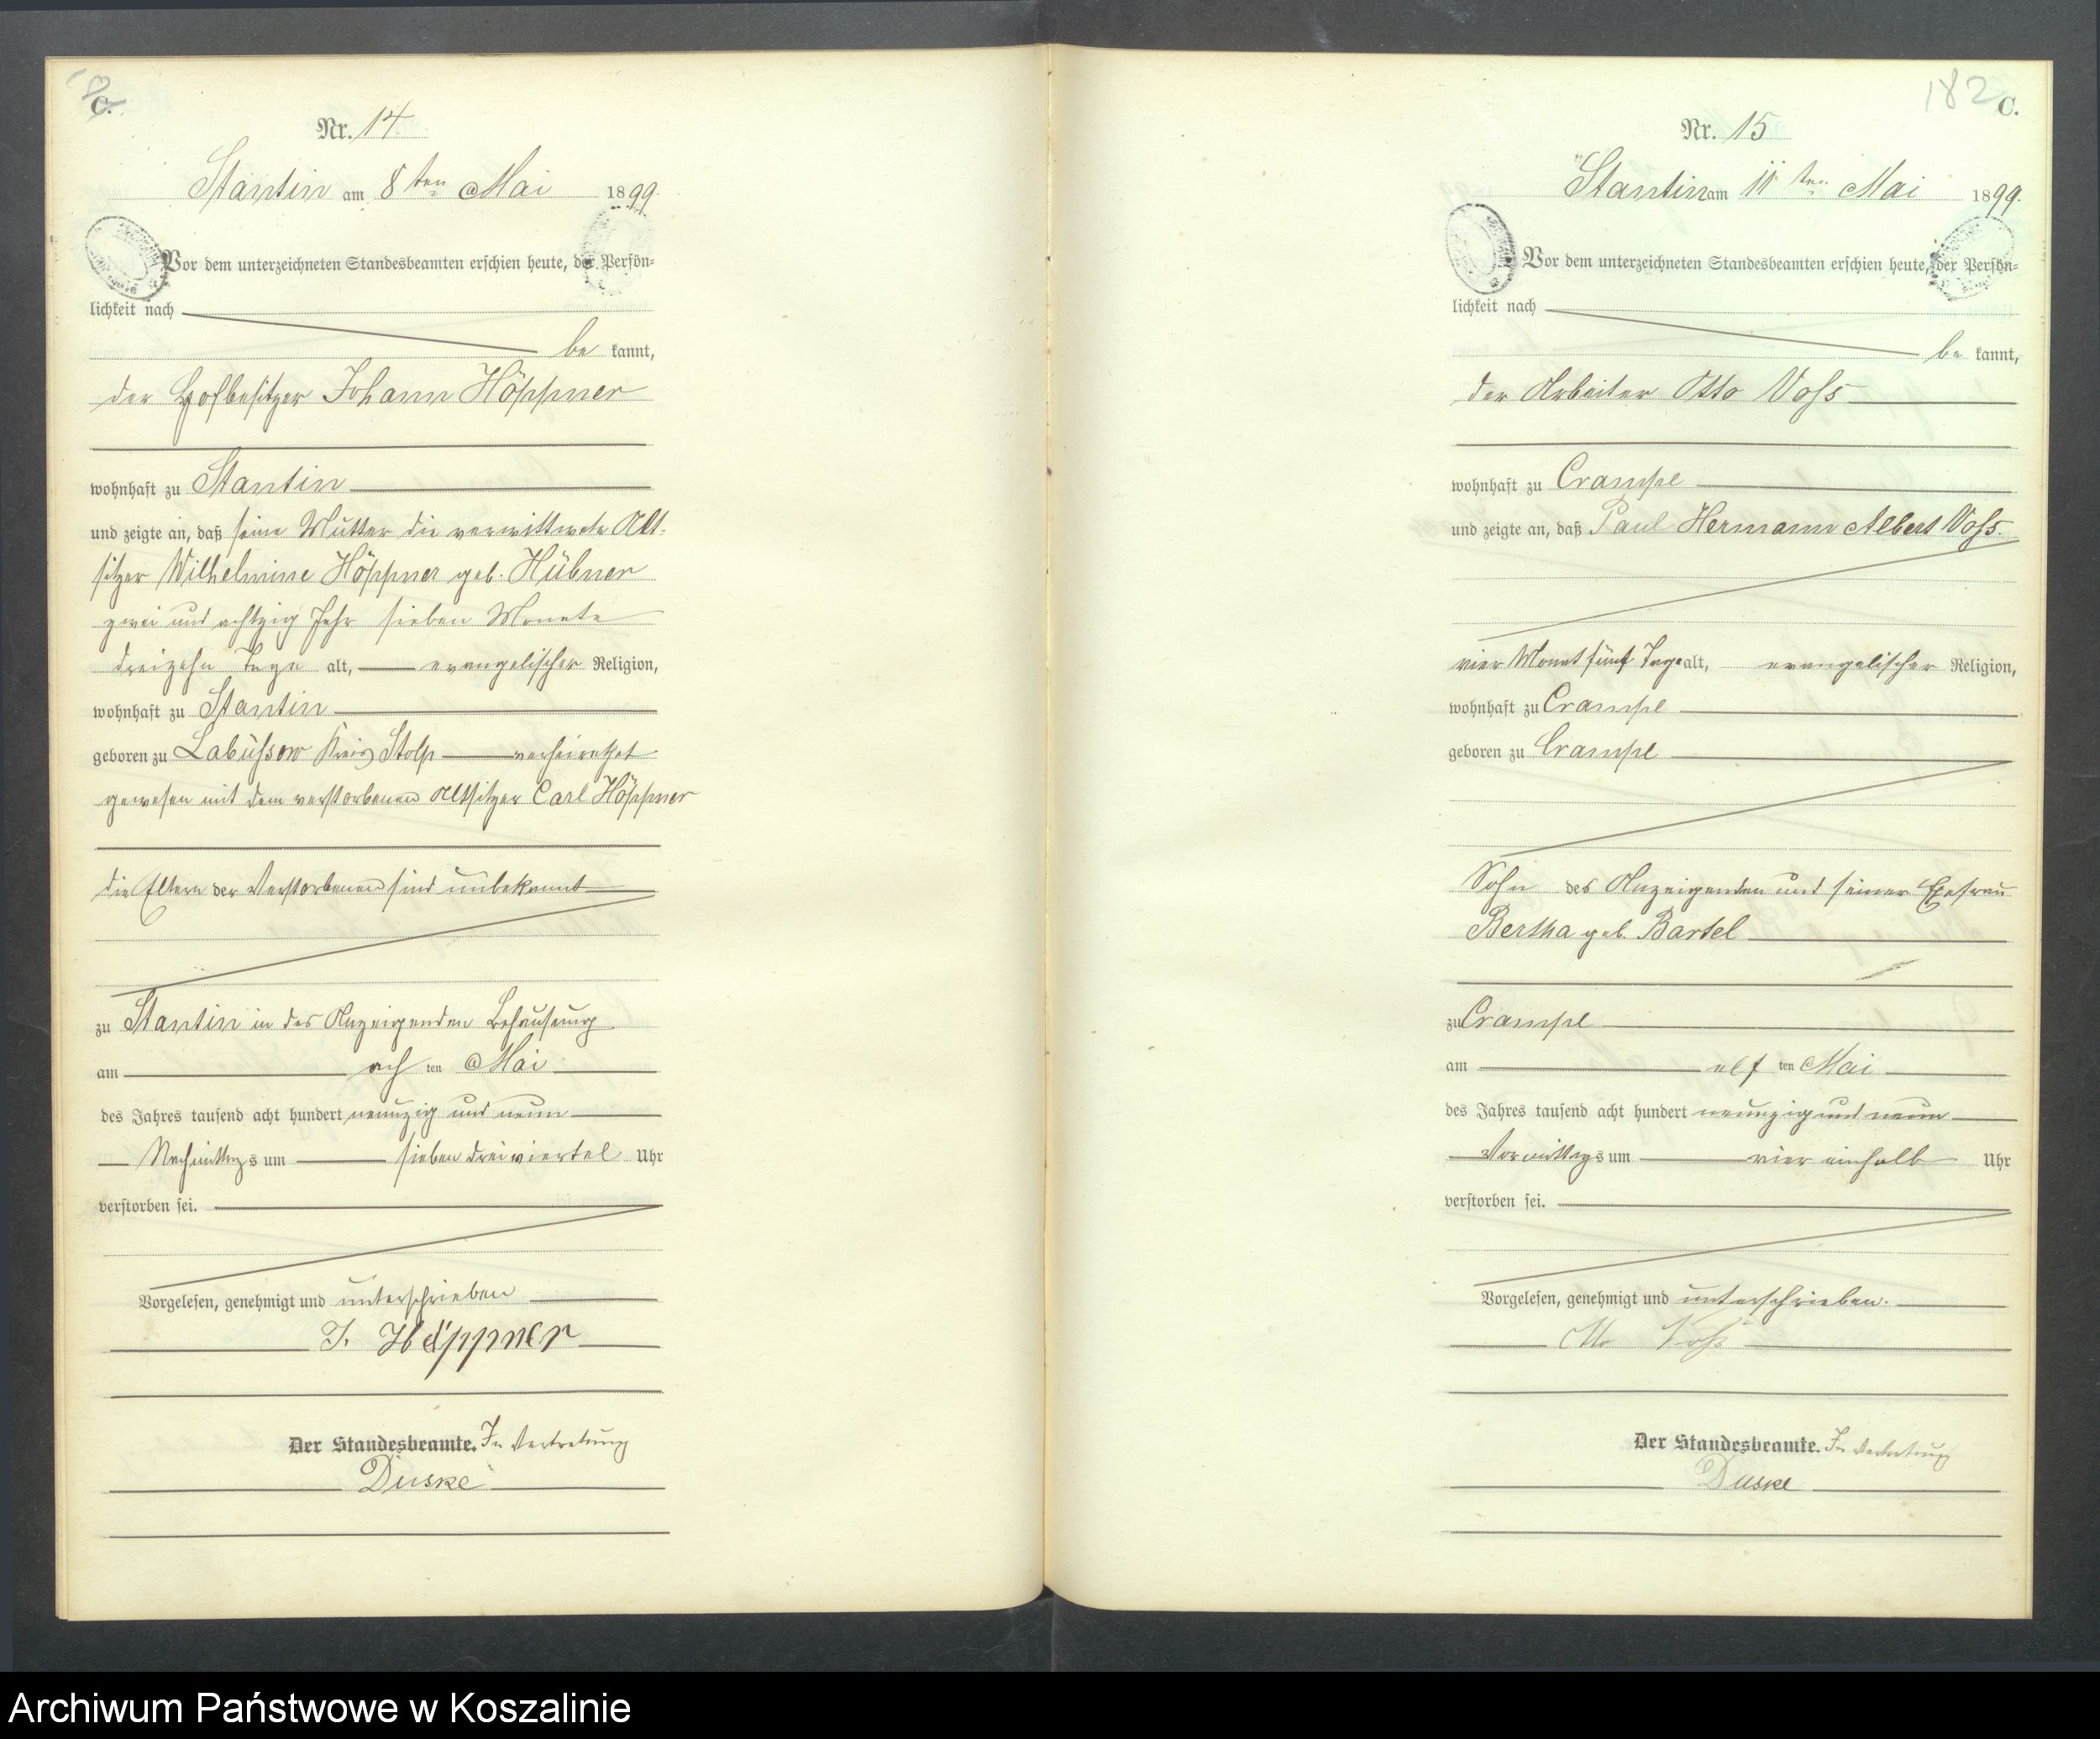 C.
Nr. 14
Stantin am 8 ten Mai 1899.
Vor dem unterzeichneten Standesbeamten erschien heute, der Persön-
lichkeit nach
be kannt,
der Hofbesitzer Johann Höppner
wohnhaft zu Stantin
und zeigte an, daß seine Mutter die verwittwete Alt-
sitzer Wilhelmine Höppner geb. Hübner
zwei und achtzig Jahr sieben Monate
dreizehn Tage alt, evangelischer Religion,
wohnhaft zu Stantin
geboren zu Labüssow Kreis Stolp verheirathet
gewesen mit dem verstorbenen Altsitzer Carl Höppner
die Eltern der Verstorbenen sind unbekannt
zu Stantin in des Anzeigenden Behausung
am ach ten Mai
des Jahres tausend acht hundert neunzig und neun
Nachmittags um sieben dreiviertel Uhr
verstorben sei.
Vorgelesen, genehmigt und unterschrieben
J. Höppner
Der Standesbeamte. In Vertretung
Duske
182 C.
Nr. 15
Stantin am 11 ten Mai 1899.
Vor dem unterzeichneten Standesbeamten erschien heute, der Persön-
lichkeit nach
be kannt,
der Arbeiter Otto Voss
wohnhaft zu Crampe
und zeigte an, daß Paul Hermann Albert Voss.
vier Monat fünf Tage alt, evangelischer Religion,
wohnhaft zu Crampe
geboren zu Crampe
Sohn des Anzeigenden und seiner Ehefrau
Bertha geb. Bartel
zu Crampe
am elf ten Mai
des Jahres tausend acht hundert neunzig und neun
Vormittags um vier einhalb Uhr
verstorben sei.
Vorgelesen, genehmigt und unterschrieben.
Otto Voß
Der Standesbeamte. In Vertretung
Duske
Archiwum Państwowe w Koszalinie